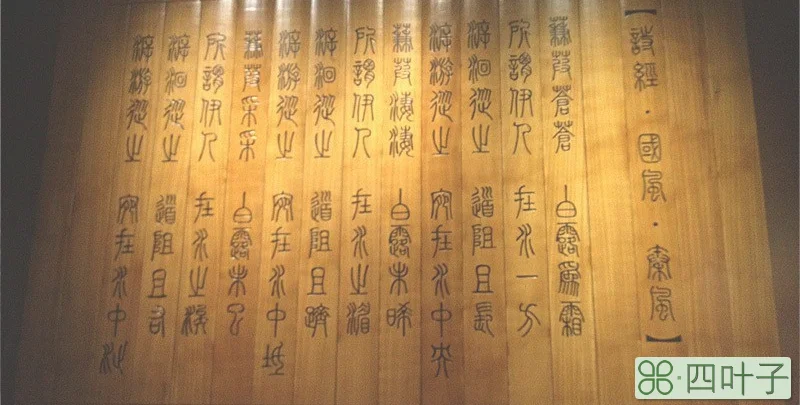 【詩經·國風·秦風】
蒹葭蒼蒼 白露爲霜
所謂伊人 在水一方
溯洄從之 道阻且長
溯游從之 宛在水中央
蒹葭淒淒 白露未晞
所謂伊人 在水之湄
溯洄從之 道阻且躋
溯游從之 宛在水中坻
蒹葭采采 白露未已
所謂伊人 在水之涘
溯洄從之 道阻且右
溯游從之 宛在水中沚
·四叶子